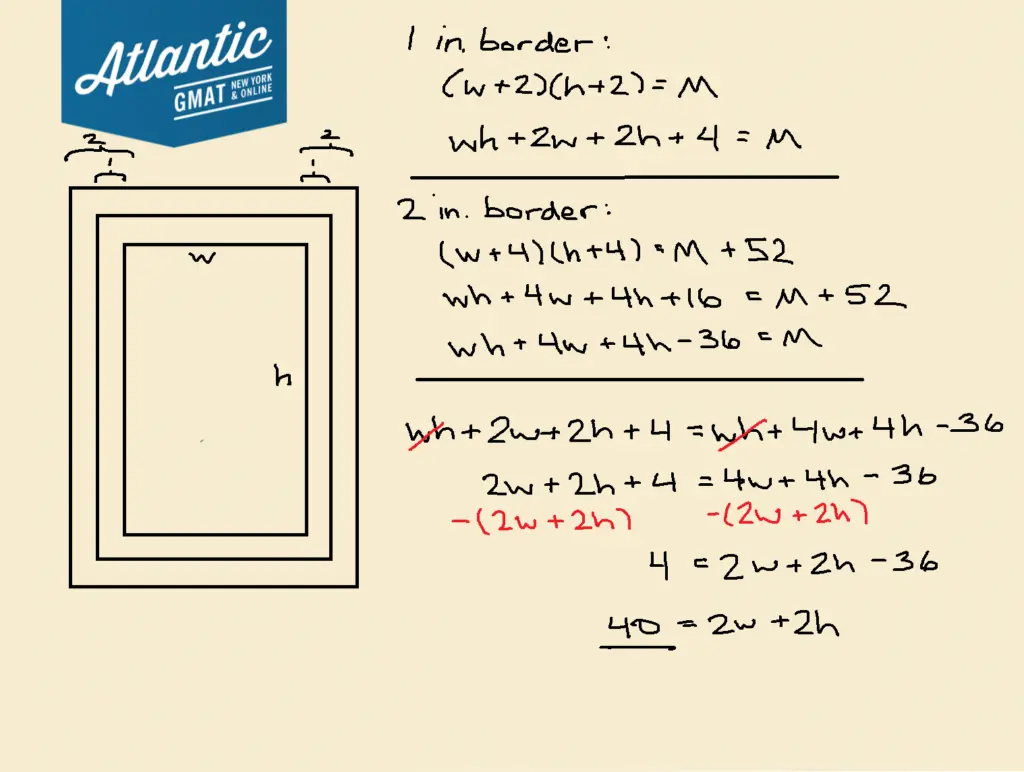 Atlantic
GMAT NEW YORK & ONLINE
2 2
1 1
w
h
1 in. border:
(w+2)(h+2) = M
wh + 2w + 2h + 4 = M
2 in. border:
(w+4)(h+4) = M + 52
wh + 4w + 4h + 16 = M + 52
wh + 4w + 4h - 36 = M
wh + 2w + 2h + 4 = wh + 4w + 4h - 36
2w + 2h + 4 = 4w + 4h - 36
-(2w + 2h) -(2w + 2h)
4 = 2w + 2h - 36
40 = 2w + 2h